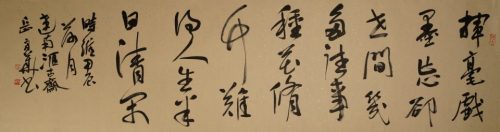 揮毫戲
墨忘卻
世間幾
多事
種花脩
竹難
得人生半
日清閑
時維甲辰
荷月
書